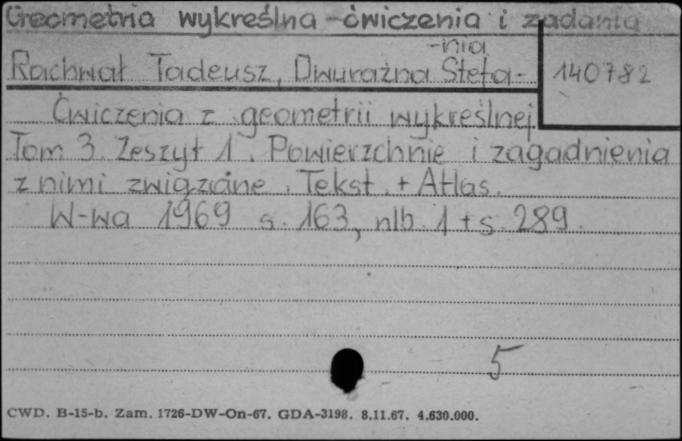 Geometria wykreślna - ćwiczenia i zadania
Rachwał Tadeusz, Dwurażna Stefa-
-nia
140782
Ćwiczenia z geometrii wykreślnej.
Tom 3. Zeszyt 1. Powierzchnie i zagadnienia
z nimi związane. Tekst + Atlas.
W-wa 1969 s. 163, nlb. 1 + s. 289.
5
CWD. B-15-b. Zam. 1726-DW-On-67. GDA-3198. 8.11.67. 4.630.000.